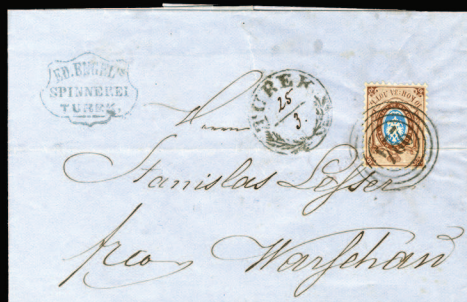 ED. ENGEL'S
SPINNEREI
TUREK.
TUREK
25
3.
Herrn
Stanislas Lesser
fco Warschau